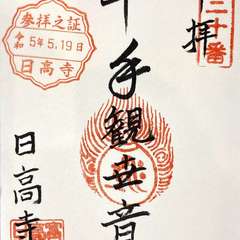 三十番
拝
千手観世音
参拝之証
令和 5年5.19日
日高寺
日高寺